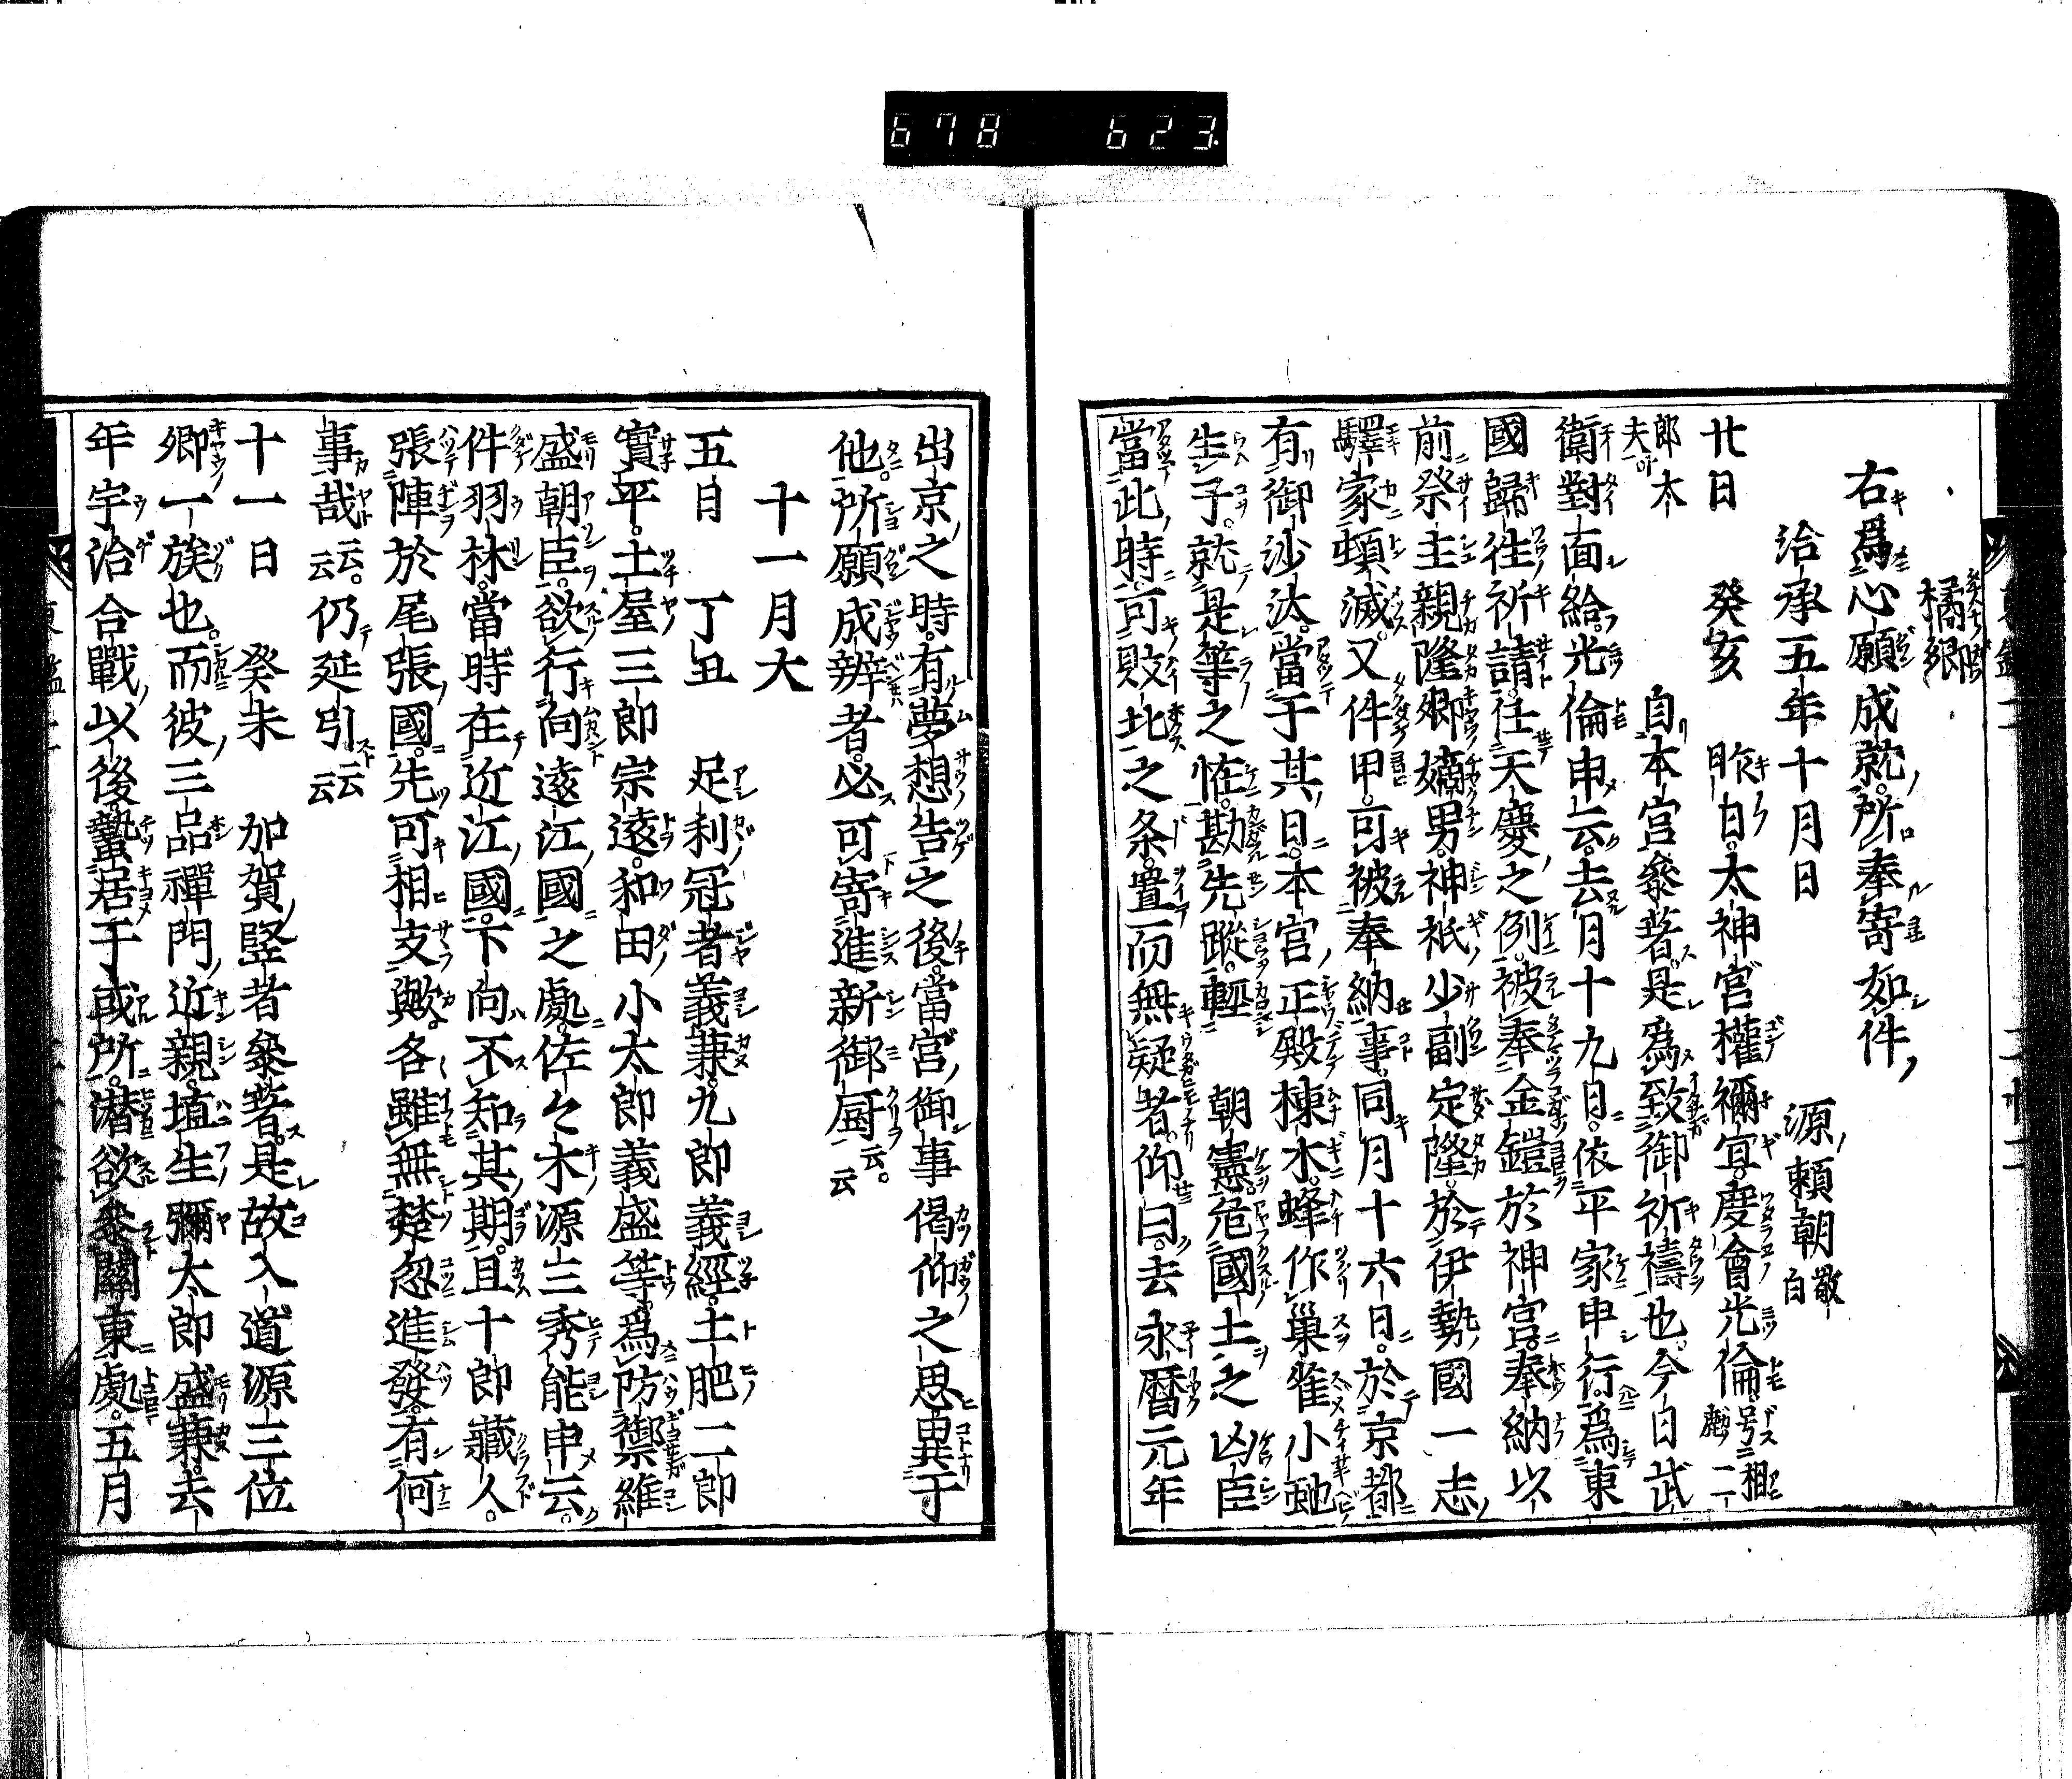 678 623
橘郷
右爲心願成就所奉寄如件
治承五年十月日 源頼朝敬白
廿日 癸亥 昨日太神宮權禰宜度會光倫号相
郎太夫 自本宮參著是爲致御祈禱也今日武
衛對面給光倫申云去月十九日依平家申行爲東
國歸往祈請任天慶之例被奉金鎧於神宮奉納以
前祭主親隆卿嫡男神祇少副定隆於伊勢國一志
驛家頓滅又件甲可被奉納事同月十六日於京都
有御沙汰當于其日本宮正殿棟木蜂作巢雀小虵
生子就是等之恠勘先蹤輕 朝憲危國土之凶臣
當此時可敗北之条置而無疑者仰曰去永暦元年
出京之時有夢想告之後當宮御事偈仰之思異于
他所願成辨者必可寄進新御厨云云
十一月大
五日 丁丑 足利冠者義兼九郎義經土肥二郎
實平土屋三郎宗遠和田小太郎義盛等爲防禦維
盛朝臣欲行向遠江國之處佐々木源三秀能申云
件羽林當時在近江國下向不知其期且十郎藏人
張陣於尾張國先可相支歟各雖無楚忽進發有何
事哉云云仍延引云云
十一日 癸未 加賀竪者參著是故入道源三位
卿一族也而彼三品禪門近親埴生彌太郎盛兼去
年宇治合戰以後蟄居于或所潜欲參關東處五月